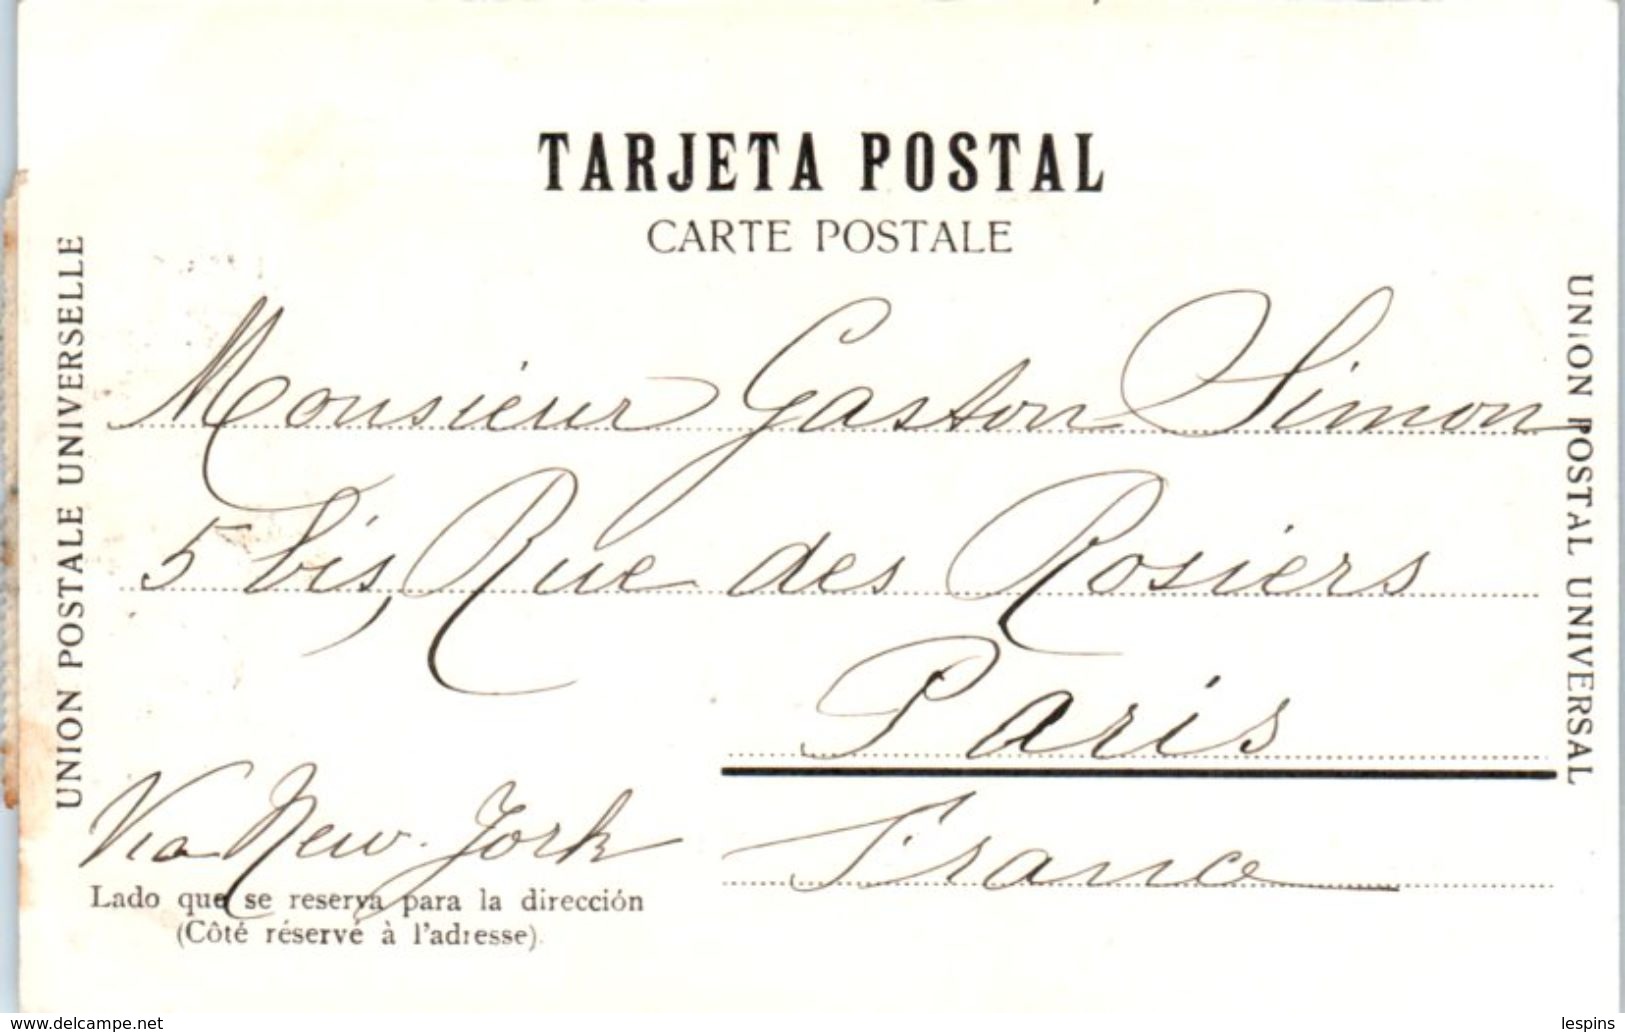 TARJETA POSTAL
CARTE POSTALE
UNION POSTALE UNIVERSELLE
UNION POSTAL UNIVERSAL
Monsieur Gaston Simon
5 bis, Rue des Rosiers
Paris
France
Via New-York
Lado que se reserva para la dirección
(Côté réservé à l'adresse).
www.delcampe.net
lespins